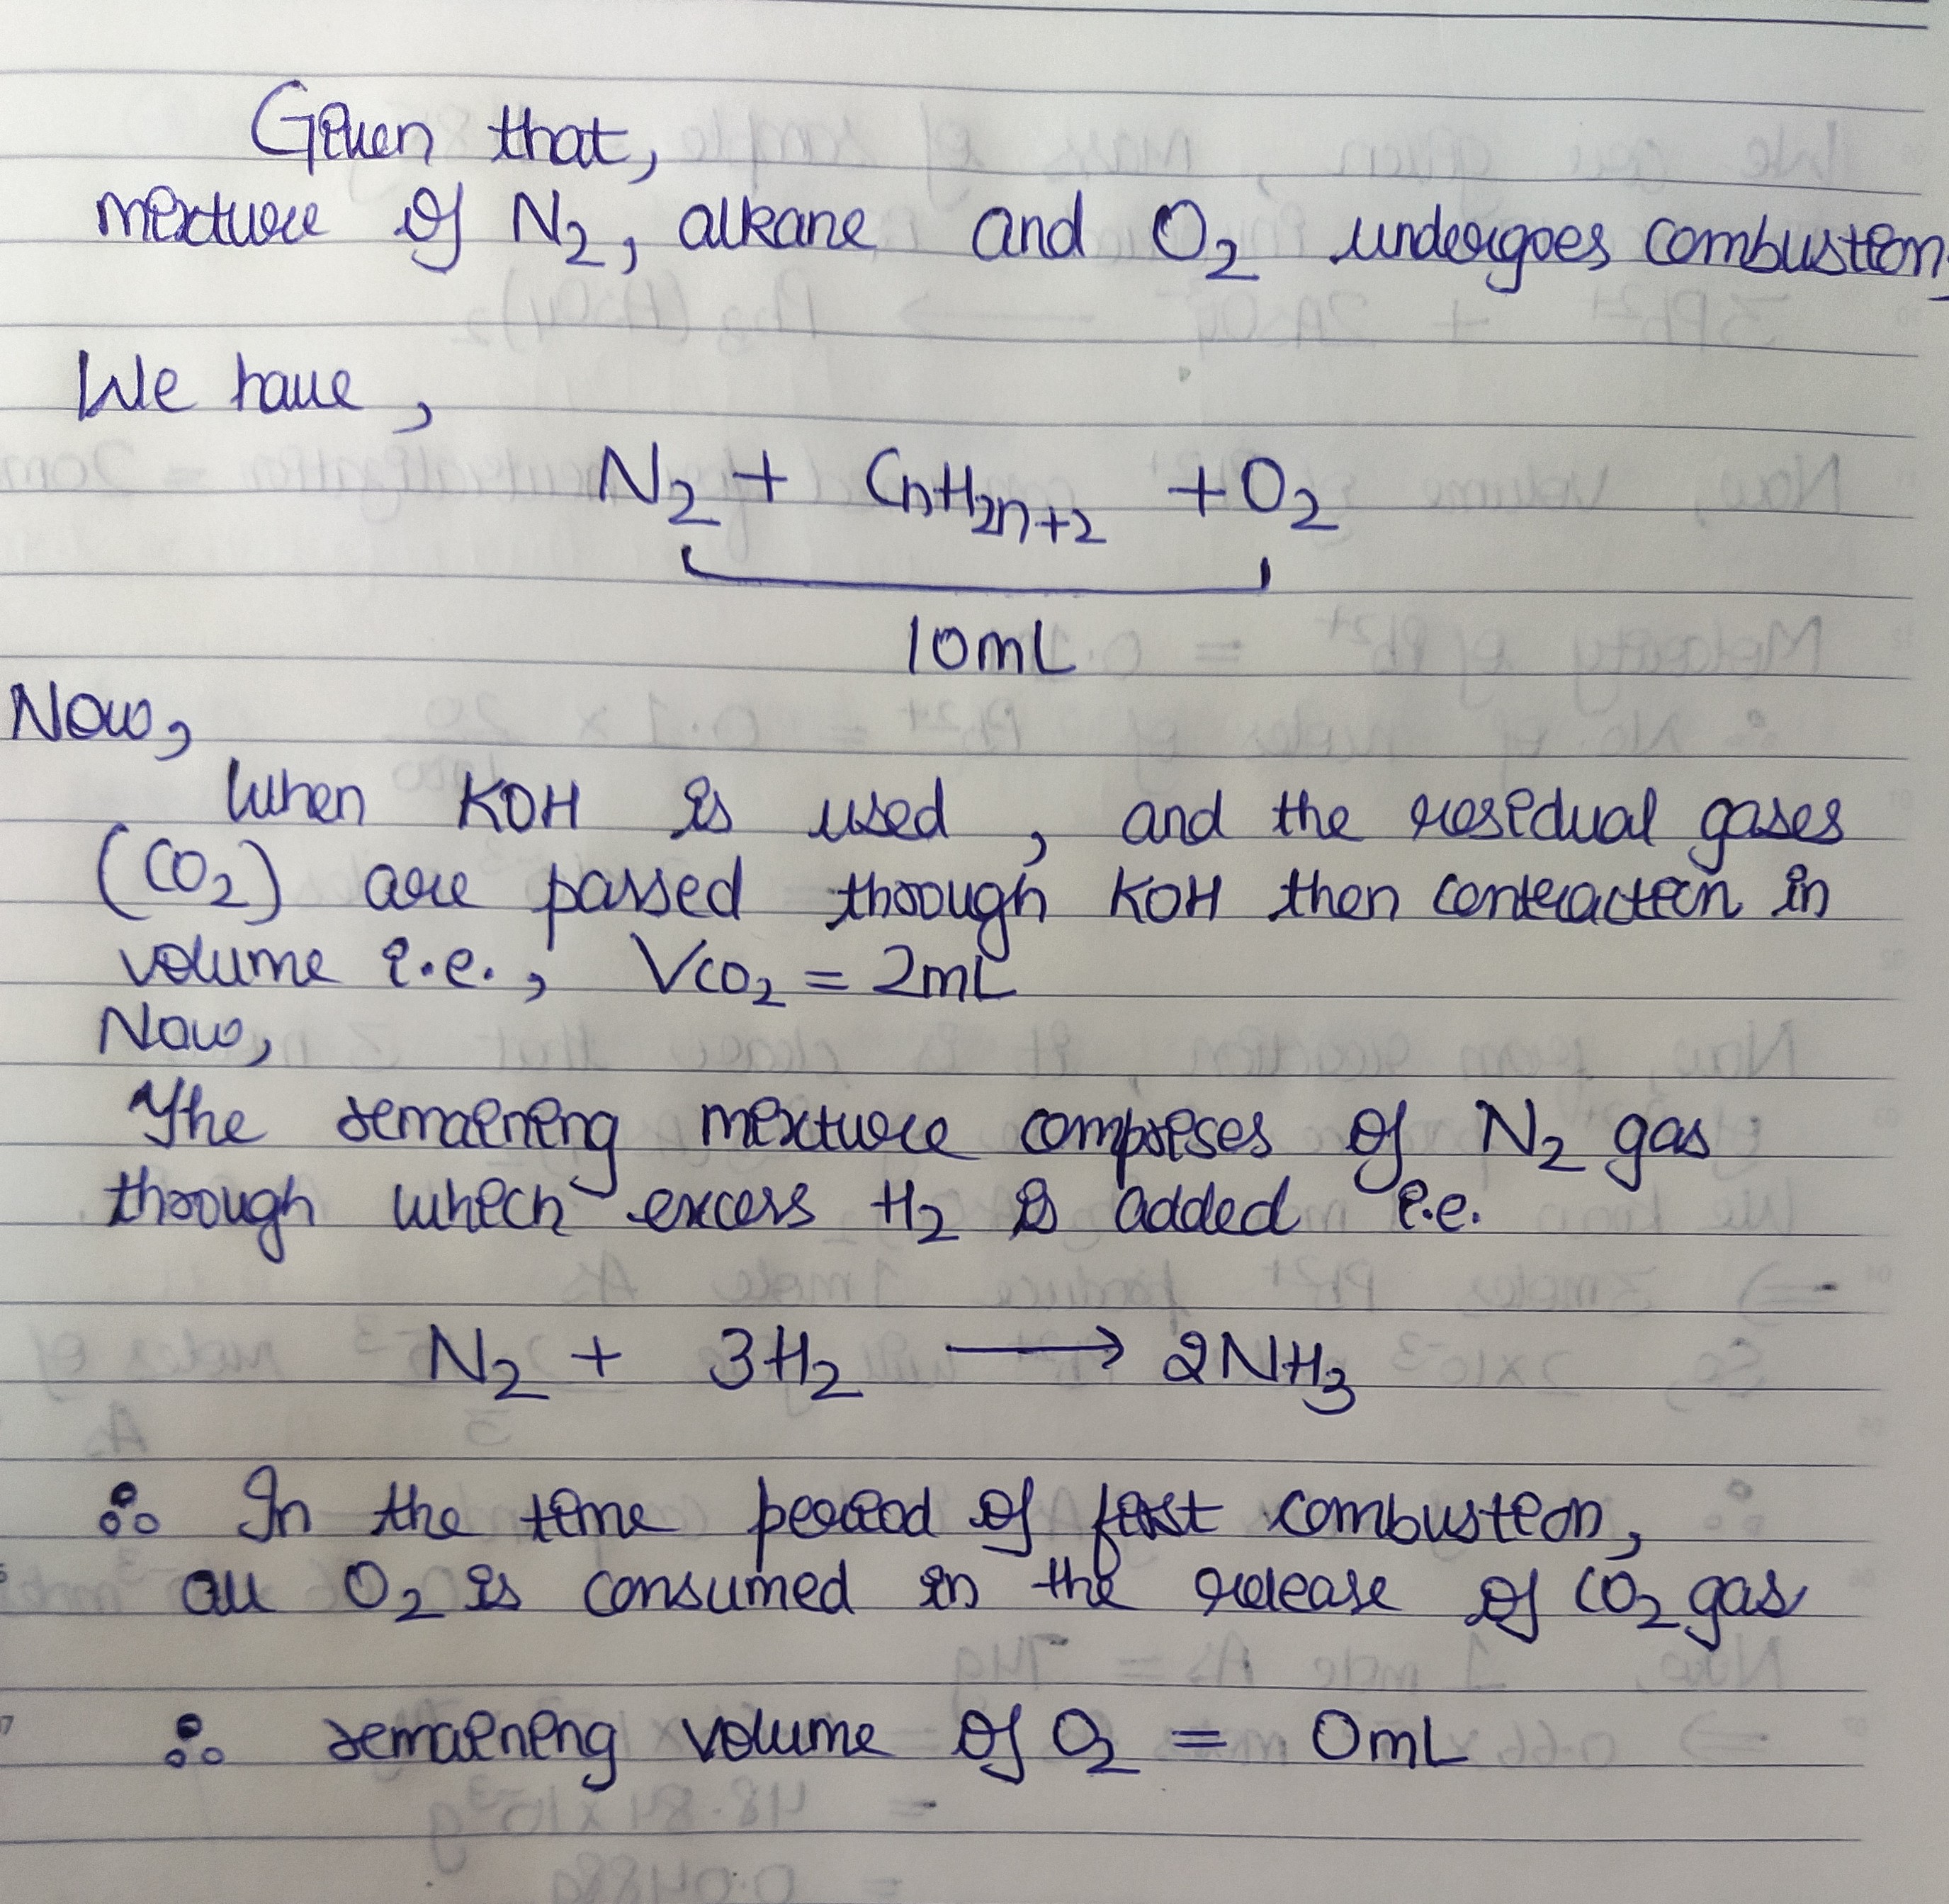 Given that,
mixture of N₂, alkane and O₂ undergoes combustion,
We have,
N₂ + CnH2n+2 + O₂
10mL
Now,
When KOH is used, and the residual gases
(CO₂) are passed through KOH then contraction in
volume i.e., VCO₂ = 2mL
Now,
The remaining mixture comprises of N₂ gas
through which excess H₂ is added i.e.
N₂ + 3H₂ ⟶ 2NH₃
∴ In the time period of first combustion,
all O₂ is consumed in the release of CO₂ gas
∴ remaining volume of O₂ = 0mL